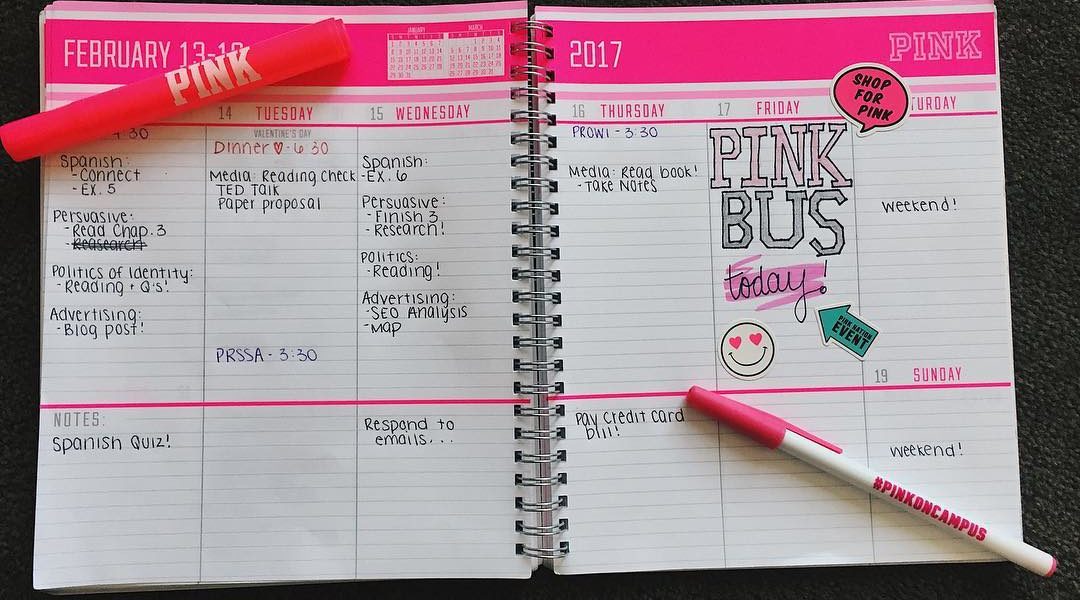 FEBRUARY 13-19
PINK
JANUARY
MARCH
2017
PINK
14 TUESDAY
15 WEDNESDAY
16 THURSDAY
17 FRIDAY
SHOP
FOR
PINK
URDAY
4:30
Spanish:
- Connect
- EX. 5
Persuasive:
- Read Chap. 3
- Reasearch
Politics of Identity:
- Reading + Q's!
Advertising:
- Blog post!
VALENTINE'S DAY
Dinner ♡ - 6:30
Media: Reading Check
TED Talk
Paper proposal
PRSSA - 3:30
Spanish:
- EX. 6
Persuasive:
- Finish 3
- Research!
Politics:
- Reading!
Advertising:
- SEO Analysis
- Map
PROWL - 3:30
Media: Read book!
- Take Notes
PINK
BUS
today!
PINK NATION
EVENT
weekend!
19 SUNDAY
weekend!
NOTES:
Spanish Quiz!
Respond to
emails...
Pay Credit Card
bill!
#PINKONCAMPUS